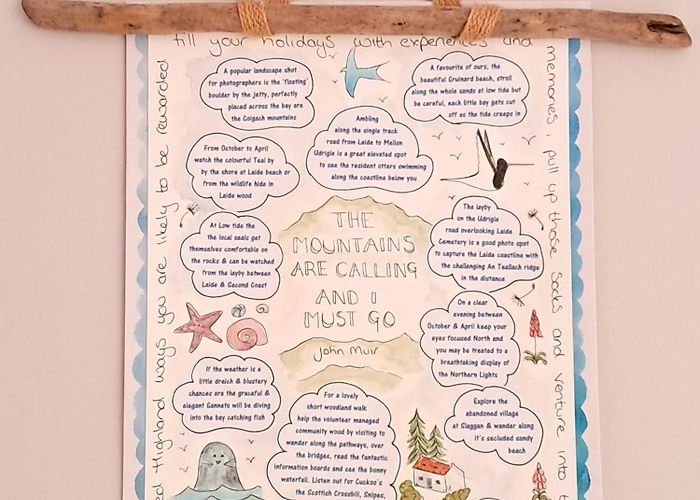 fill your holidays with experiences and
memories, pull up those socks and venture into
Highland ways you are likely to be rewarded
A popular landscape shot
for photographers is the 'floating'
boulder by the jetty, perfectly
placed across the bay are
the Coigach mountains
A favourite of ours, the
beautiful Gruinard beach, stroll
along the whole sands at low tide but
be careful, each little bay gets cut
off as the tide creeps in
Ambling
along the single track
road from Laide to Mellon
Udrigle is a great elevated spot
to see the resident otters swimming
along the coastline below you
From October to April
watch the colourful Teal by
by the chore at Laide beach or
from the wildlife hide in
Laide wood
The layby
on the Udrigle
road overlooking Laide
Cemetery is a good photo spot
to capture the Laide coastline with
the challenging An Teallach ridge
in the distance
At Low tide the
the local seals get
themselves comfortable on
the rocks & can be watched
from the layby between
Laide & Second Coast
THE
MOUNTAINS
ARE CALLING
AND I
MUST GO
John Muir
On a clear
evening between
October & April keep your
eyes focused North and
you may be treated to a
breathtaking display of
the Northern Lights
If the weather is a
little dreich & blustery
chances are the graceful &
elegant Gannets will be diving
into the bay catching fish
For a lovely
short woodland walk
help the volunteer managed
community wood by visiting to
wander along the pathways, over
the bridges, read the fantastic
information boards and see the bonny
waterfall. Listen out for Cuckoo's
the Scottish Crossbill, Snipes,
Explore the
abandoned village
at Slaggan & wander along
it's secluded sandy
beach